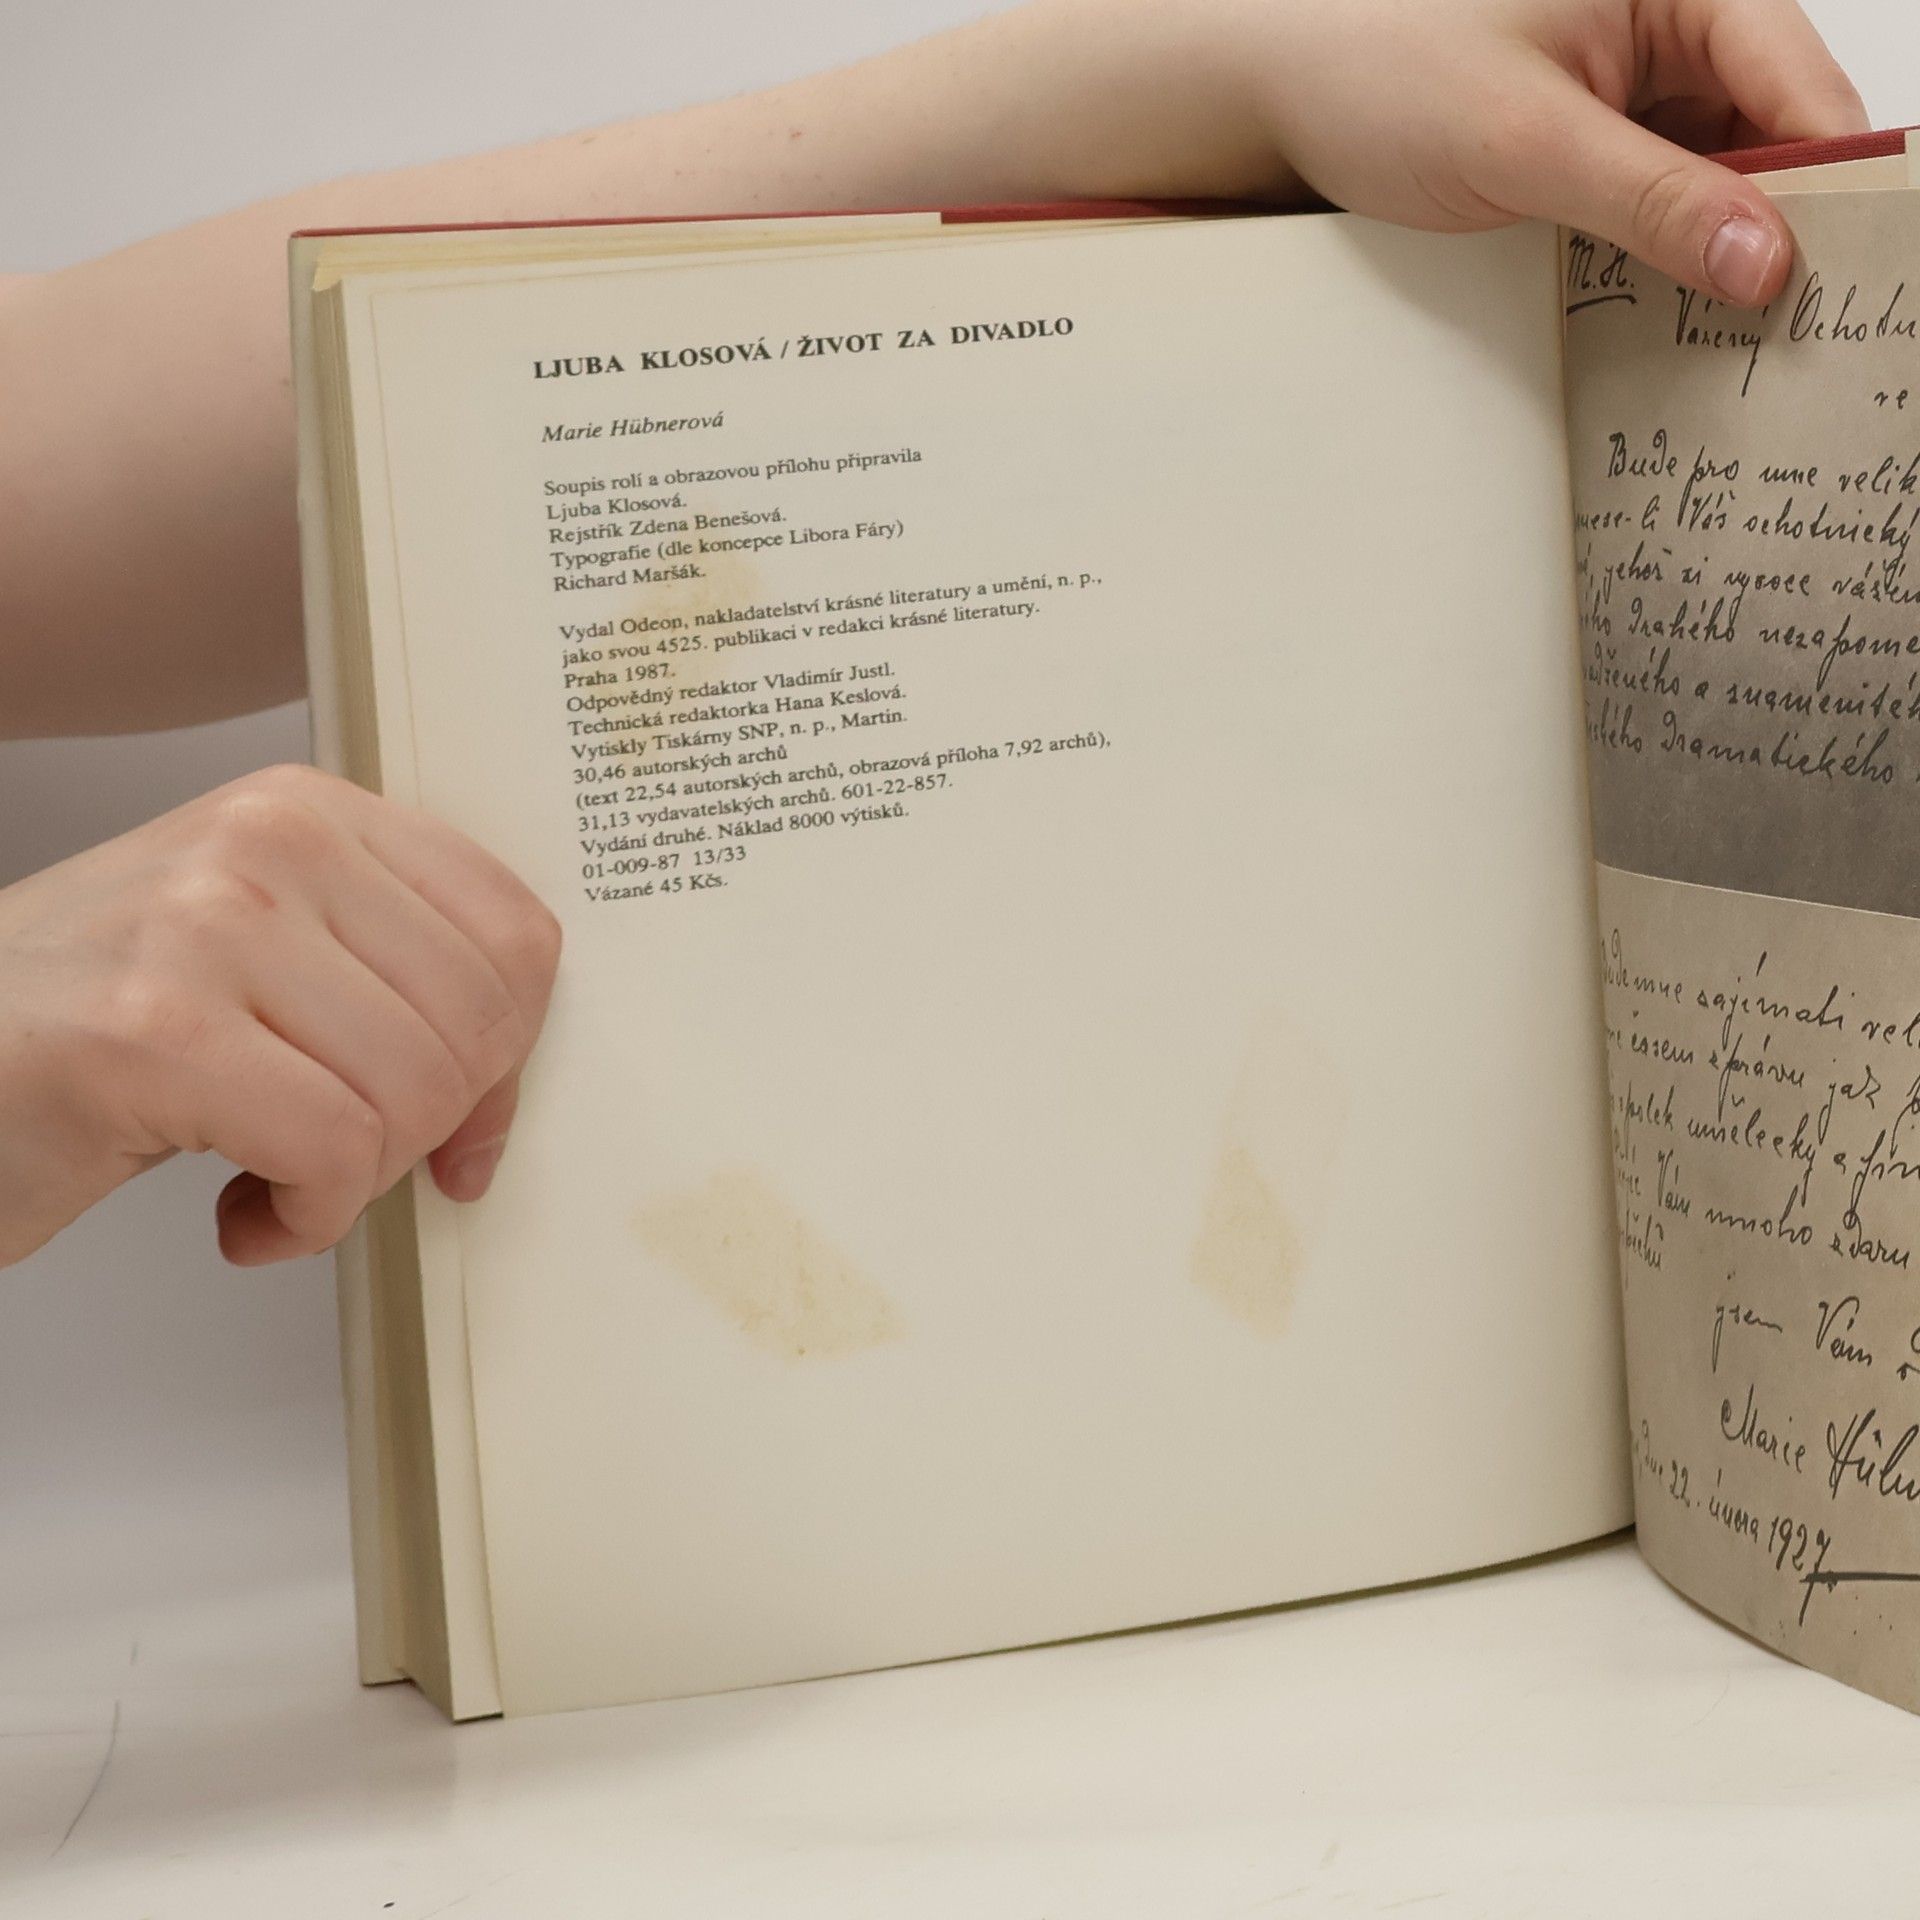 LJUBA KLOSOVÁ / ŽIVOT ZA DIVADLO
Marie Hübnerová
Soupis rolí a obrazovou přílohu připravila
Ljuba Klosová.
Rejstřík Zdena Benešová.
Typografie (dle koncepce Libora Fáry)
Richard Maršák.
Vydal Odeon, nakladatelství krásné literatury a umění, n. p.,
jako svou 4525. publikaci v redakci krásné literatury.
Praha 1987.
Odpovědný redaktor Vladimír Justl.
Technická redaktorka Hana Keslová.
Vytiskly Tiskárny SNP, n. p., Martin.
30,46 autorských archů
(text 22,54 autorských archů, obrazová příloha 7,92 archů),
31,13 vydavatelských archů. 601-22-857.
Vydání druhé. Náklad 8000 výtisků.
01-009-87 13/33
Vázané 45 Kčs.
M. H.
Vážený
Bude pro mne
Váš ochotnický
jehož si vysoce
drahého
a znamenitéh
dramatického
zajímati
časem zprávu jak
umělecky a
Vám mnoho zdaru
jsem Vám
Marie
22. února 1927.